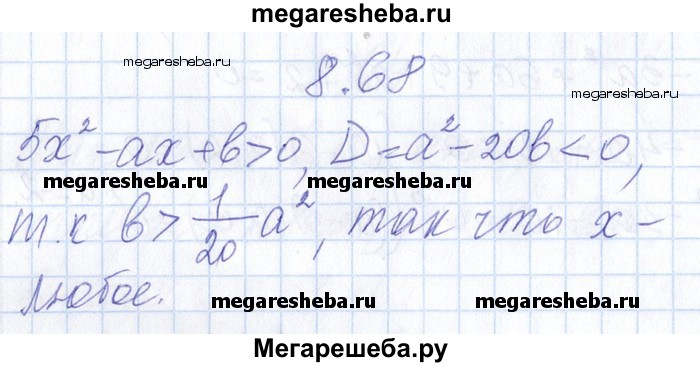 megaresheba.ru
8.68
megaresheba.ru
megaresheba.ru
5x² - ax + b > 0, D = a² - 20b < 0,
megaresheba.ru
megaresheba.ru
т.к b > 1/20 a², так что x -
любое.
megaresheba.ru
megaresheba.ru
Мегарешеба.ру